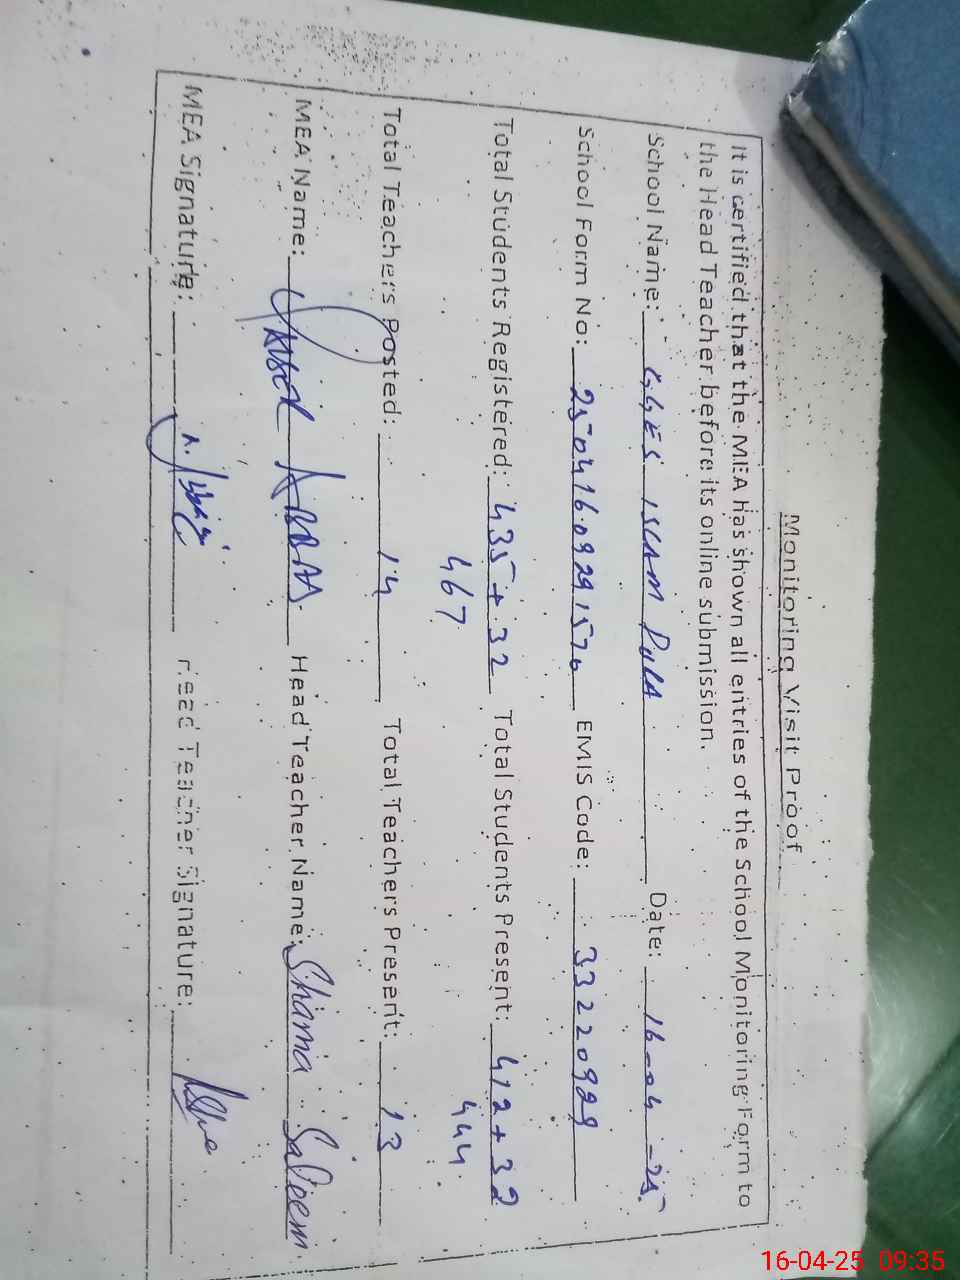 Monitoring Visit Proof
It is certified that the MEA has shown all entries of the School Monitoring Form to
the Head Teacher before its online submission.
School Name: GGES ISLAM PURA Date: 16-04-25
School Form No: 25041609291576 EMIS Code: 33220929
Total Students Registered: 435+32 Total Students Present: 412+32
467 444
Total Teachers Posted: 14 Total Teachers Present: 13
MEA Name: ABBAS Head Teacher Name: Shama Saleem
MEA Signature: Head Teacher Signature:
16-04-25 09:35